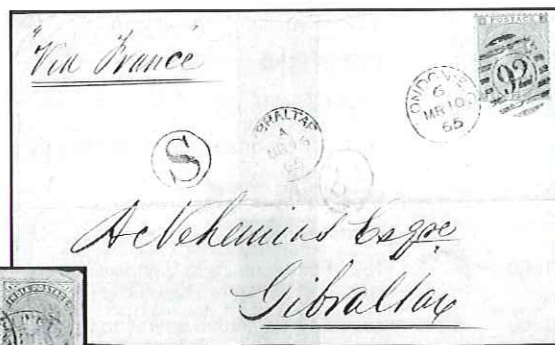 "Via France"
POSTAGE
92
ONDON
6
MR 10
65
S
BRALTAR
A
65
Nehemias Esqre
Gibraltar